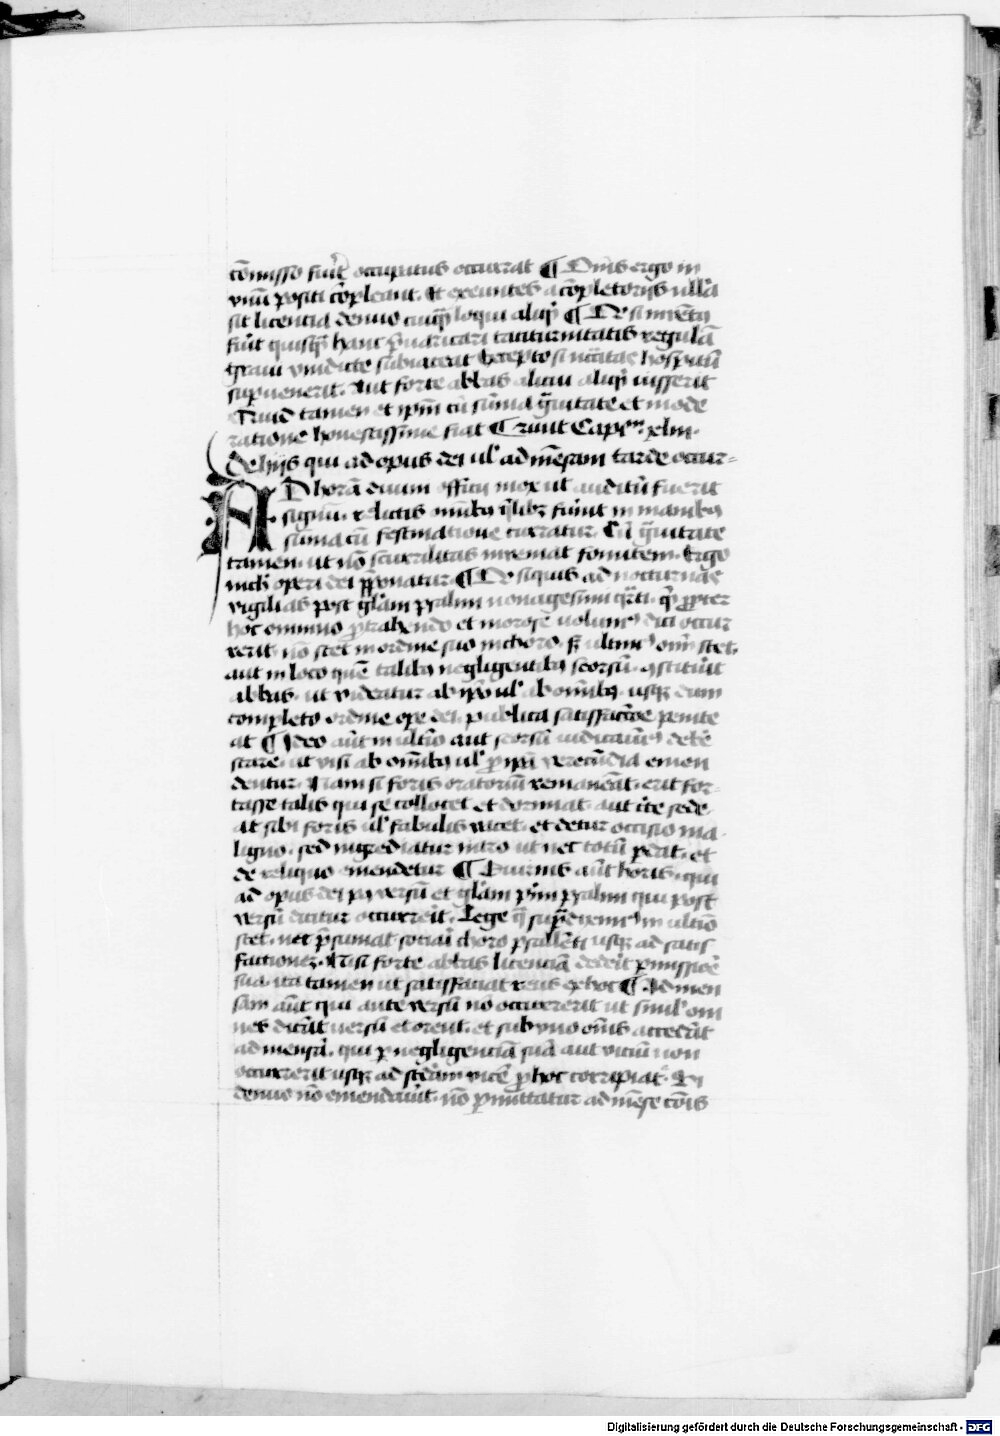 cōmisso fuīt occupatus occurrat ¶ Om̄s ergo in
vnū positi cōpleant. Et exeuntes a cōpletorijs nulla
sit licentia denuo cuiq̄ loqui aliq̄ ¶ Qd si invēt9
fūit quisq̄ hanc p̄uaricari taciturnitatis regulā
graui vindicte subiaceat Excepto si nc̄c̄itas hospitū
supuenerit. Aut forte abbas alicui aliq̄ iusserit
Quod tamen et ip̄m cū sūma g̃uitate et mode
ratione honestissime fiat Capł xliii.
De hijs qui ad opus dei ul' ad mēsam tarde occur=
AD horā diuini officij mox ut auditū fuerit
signū. relictis omīb9 q̄libz fūint in manib9
sūma cū festinatione curratur. Cū g̃uitate
tamen. ut nō scurrilitas inveniat fomitem. Ergo
nichil operi dei p̄ponatur ¶ Qd si quis ad nocturnas
vigilias post gl̄am psalmi nonagesimi q̄rti. q̄ p̄pter
hoc omnino p̄trahendo et morose volum9 dici occur
rerit. nō stet in ordine suo in choro. sz ultim9 om̄ stet.
aut in loco quē talib9 negligentib9 seorsū 9stituit
abbas. ut videatur ab ip̄o ul' ab omīb9. usqz dum
completo ordine ope dei. publica satisfactōe penite
at ¶ Ideo aūt in ultīo aut seorsū iudicauim9 debē
stare. ut visi ab omīb9 ul' p̄ ip̄a verecūdia emen
dentur. Nam si foris oratoriū remaneāt. erit for-
tasse talis qui se collocet et dormiat. aut c̄te sede
at sibi foris ul' fabulis vacet. et detur occasio ma
ligno. sed ingrediatur intro ut nec totū p̄dat. et
de reliquo emendetur ¶ Diurnis aūt horis. qui
ad opus dei p9 versū et gl̄am p̄mi psalmi qui post
versū dicitur occurrerit. Lege q̄ sup̄ diximus in ultīo
stet. nec p̄sumat sociari choro psallētiū usqz ad satis
factionez. Nisi forte abbas licenciā dederit p̄missiōe
sua. ita tamen ut satisfaciat reus ex hoc ¶ Ad men
sam aūt qui ante versū nō occurrerit ut simul om
nes dicāt versū et orent. et sub vno om̄s accedāt
ad mensā. qui p̄ negligenciā suā aut viciū non
occurrerit usqz ad scd̄am vicē p̄ hoc corripiat̄. Si
denuo nō emendauīt. nō p̄mittatur ad mēse cōis
Digitalisierung gefördert durch die Deutsche Forschungsgemeinschaft - DFG